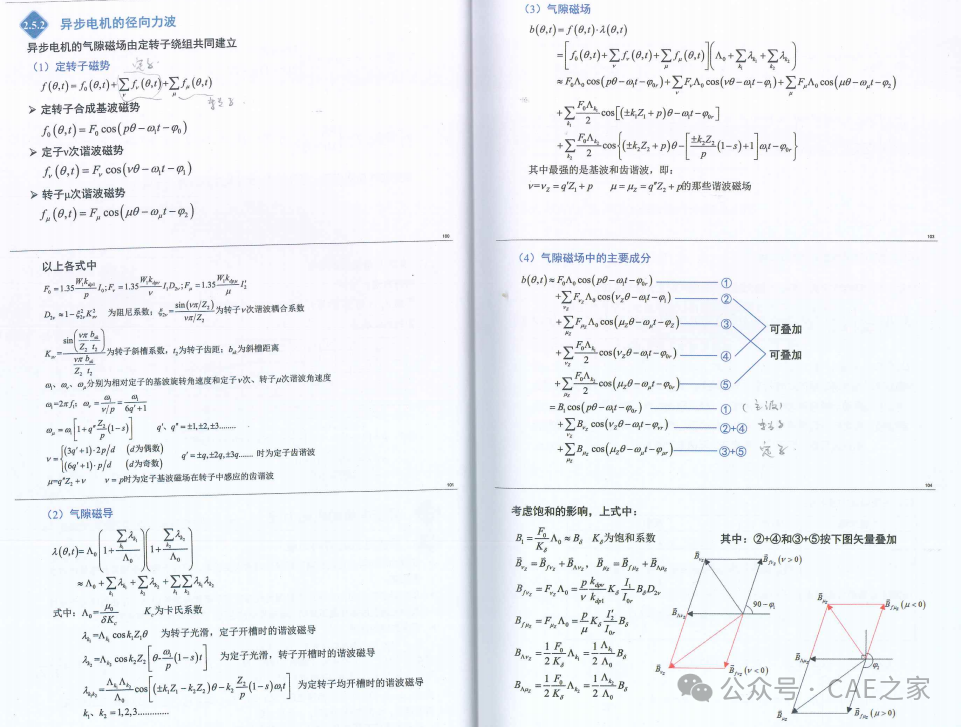 2.5.2 异步电机的径向力波
异步电机的气隙磁场由定转子绕组共同建立
(1)定转子磁势
f(θ,t)=f₀(θ,t)+∑_ν f_ν(θ,t)+∑_μ f_μ(θ,t)
➢ 定转子合成基波磁势
f₀(θ,t)=F₀cos(pθ−ω₁t−φ₀)
➢ 定子ν次谐波磁势
f_ν(θ,t)=F_νcos(νθ−ω₁t−φ₁)
➢ 转子μ次谐波磁势
f_μ(θ,t)=F_μcos(μθ−ω_μt−φ₂)
100
以上各式中
F₀=1.35 (W₁k_dp1/p) I₀; F_ν=1.35 (W₁k_dpν/ν) I₁D_2ν; F_μ=1.35 (W₁k_dpμ/μ) I₂′
D_2ν≈1−ξ²_2νK²_αν 为阻尼系数; ξ_2ν=sin(νπ/Z₂)/(νπ/Z₂) 为转子ν次谐波耦合系数
K_αν=sin((νπ/Z₂)(b_sk/t₂))/((νπ/Z₂)(b_sk/t₂)) 为转子斜槽系数,t₂为转子齿距;b_sk为斜槽距离
ω₁、ω_ν、ω_μ分别为相对定子的基波旋转角速度和定子ν次、转子μ次谐波角速度
ω₁=2πf₁; ω_ν=ω₁/(ν/p)=ω₁/(6q′+1)
ω_μ=ω₁[1+q″(Z₂/p)(1−s)] q′、q″=±1,±2,±3........
ν={(3q′+1)·2p/d (d为偶数)
(6q′+1)·p/d (d为奇数) q′=±q,±2q,±3q....... 时为定子齿谐波
μ=q″Z₂+ν ν=p时为定子基波磁场在转子中感应的齿谐波
101
(2)气隙磁导
λ(θ,t)=Λ₀(1+∑_k₁ λ_k₁/Λ₀)(1+∑_k₂ λ_k₂/Λ₀)
≈Λ₀+∑_k₁ λ_k₁+∑_k₂ λ_k₂+∑_k₁∑_k₂ λ_k₁λ_k₂
式中:Λ₀=μ₀/(δK_c) K_c为卡氏系数
λ_k₁=Λ_k₁cosk₁Z₁θ 为转子光滑,定子开槽时的谐波磁导
λ_k₂=Λ_k₂cosk₂Z₂[θ−(ω₁/p)(1−s)t] 为定子光滑,转子开槽时的谐波磁导
λ_k₁k₂=(Λ_k₁Λ_k₂/Λ₀)cos[(±k₁Z₁−k₂Z₂)θ−k₂(Z₂/p)(1−s)ω₁t] 为定转子均开槽时的谐波磁导
k₁、k₂=1,2,3.............
(3)气隙磁场
b(θ,t)=f(θ,t)·λ(θ,t)
=[f₀(θ,t)+∑_ν f_ν(θ,t)+∑_μ f_μ(θ,t)](Λ₀+∑_k₁ λ_k₁+∑_k₂ λ_k₂)
≈F₀Λ₀cos(pθ−ω₁t−φ₀r)+∑_ν F_νΛ₀cos(νθ−ω₁t−φ₁)+∑_μ F_μΛ₀cos(μθ−ω_μt−φ₂)
+∑_k₁ (F₀Λ_k₁/2)cos[(±k₁Z₁+p)θ−ω₁t−φ₀r]
+∑_k₂ (F₀Λ_k₂/2)cos{(±k₂Z₂+p)θ−[(±k₂Z₂/p)(1−s)+1]ω₁t−φ₀r}
其中最强的是基波和齿谐波,即:
ν=ν_Z=q′Z₁+p μ=μ_Z=q″Z₂+p的那些谐波磁场
(4)气隙磁场中的主要成分
b(θ,t)≈F₀Λ₀cos(pθ−ω₁t−φ₀r) ①
+∑F_νzΛ₀cos(ν_Zθ−ω₁t−φ₁) ②
+∑F_μzΛ₀cos(μ_Zθ−ω_μt−φ₂) ③
可叠加
+∑(F₀Λ_k₁/2)cos(ν_Zθ−ω₁t−φ₀r) ④
可叠加
+∑(F₀Λ_k₂/2)cos(μ_Zθ−ω_μt−φ₀r) ⑤
=B₁cos(pθ−ω₁t−φ₀r) ①
+∑B_νzcos(ν_Zθ−ω₁t−φ_νr) ②+④
+∑B_μzcos(μ_Zθ−ω_μt−φ_μr) ③+⑤
104
考虑饱和的影响,上式中:
B₁=(F₀/K_δ)Λ₀≈B_δ K_δ为饱和系数
其中:②+④和③+⑤按下图矢量叠加
B_νz=B_fνz+B_Λνz, B_μz=B_fμz+B_Λμz
B_fνz=F_νzΛ₀=(p/ν)(k_dpν/k_dp1)K_δ(I₁/I₀r)B_δD_2ν
B_fμz=F_μzΛ₀=(p/μ)K_δ(I₂′/I₀r)B_δ
B_Λνz=(1/2)(F₀/K_δ)Λ_k₁=(1/2)(Λ_k₁/Λ₀)B_δ
B_Λμz=(1/2)(F₀/K_δ)Λ_k₂=(1/2)(Λ_k₂/Λ₀)B_δ
B_νz
B_fνz(ν>0)
B_Λνz
90−φ₁
B_νz
B_fνz(ν<0)
B_μz
B_fμz(μ<0)
B_Λμz
φ₂
B_μz
B_fμz(μ>0)
公众号·CAE之家